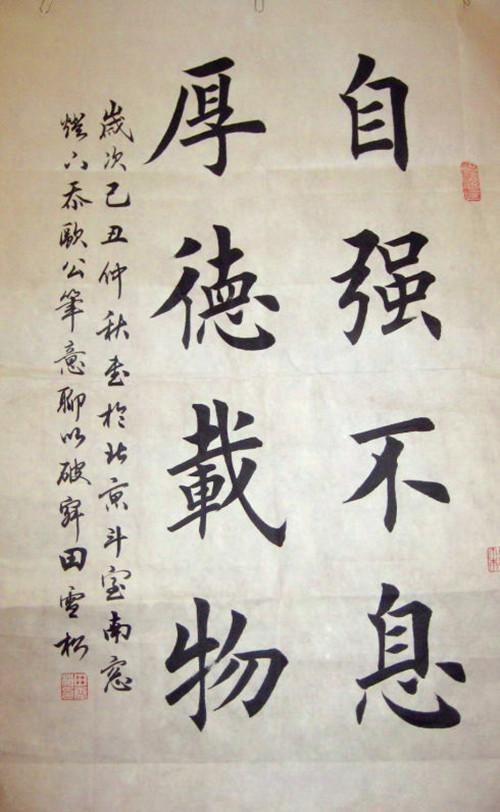 自强不息
厚德載物
歳次己丑仲秋書於北京斗室南窓
燈下忝歐公筆意聊以破寂田雪松